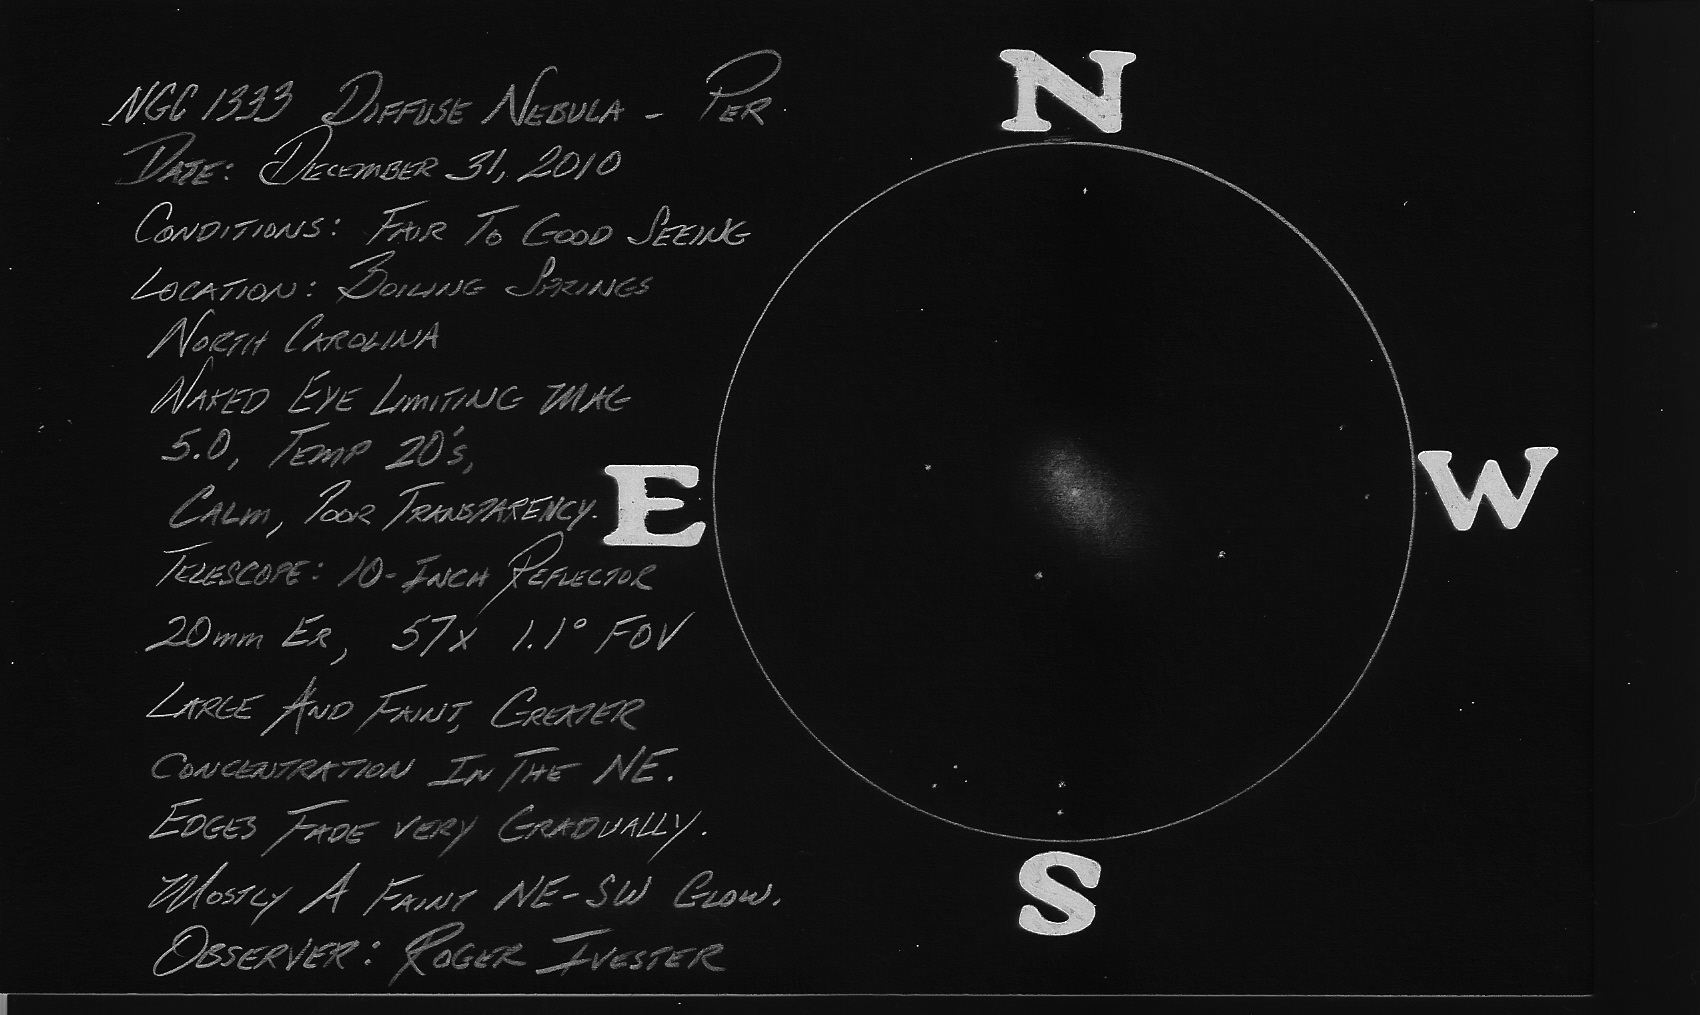 N
NGC 1333 DIFFUSE NEBULA - PER
DATE: DECEMBER 31, 2010
CONDITIONS: FAIR TO GOOD SEEING
LOCATION: BOILING SPRINGS
NORTH CAROLINA
NAKED EYE LIMITING MAG
5.0, TEMP 20's,
E
W
CALM, POOR TRANSPARENCY.
TELESCOPE: 10-INCH REFLECTOR
20mm ER, 57x 1.1° FOV
LARGE AND FAINT, GREATER
CONCENTRATION IN THE NE.
EDGES FADE VERY GRADUALLY.
MOSTLY A FAINT NE-SW GLOW.
S
OBSERVER: ROGER IVESTER